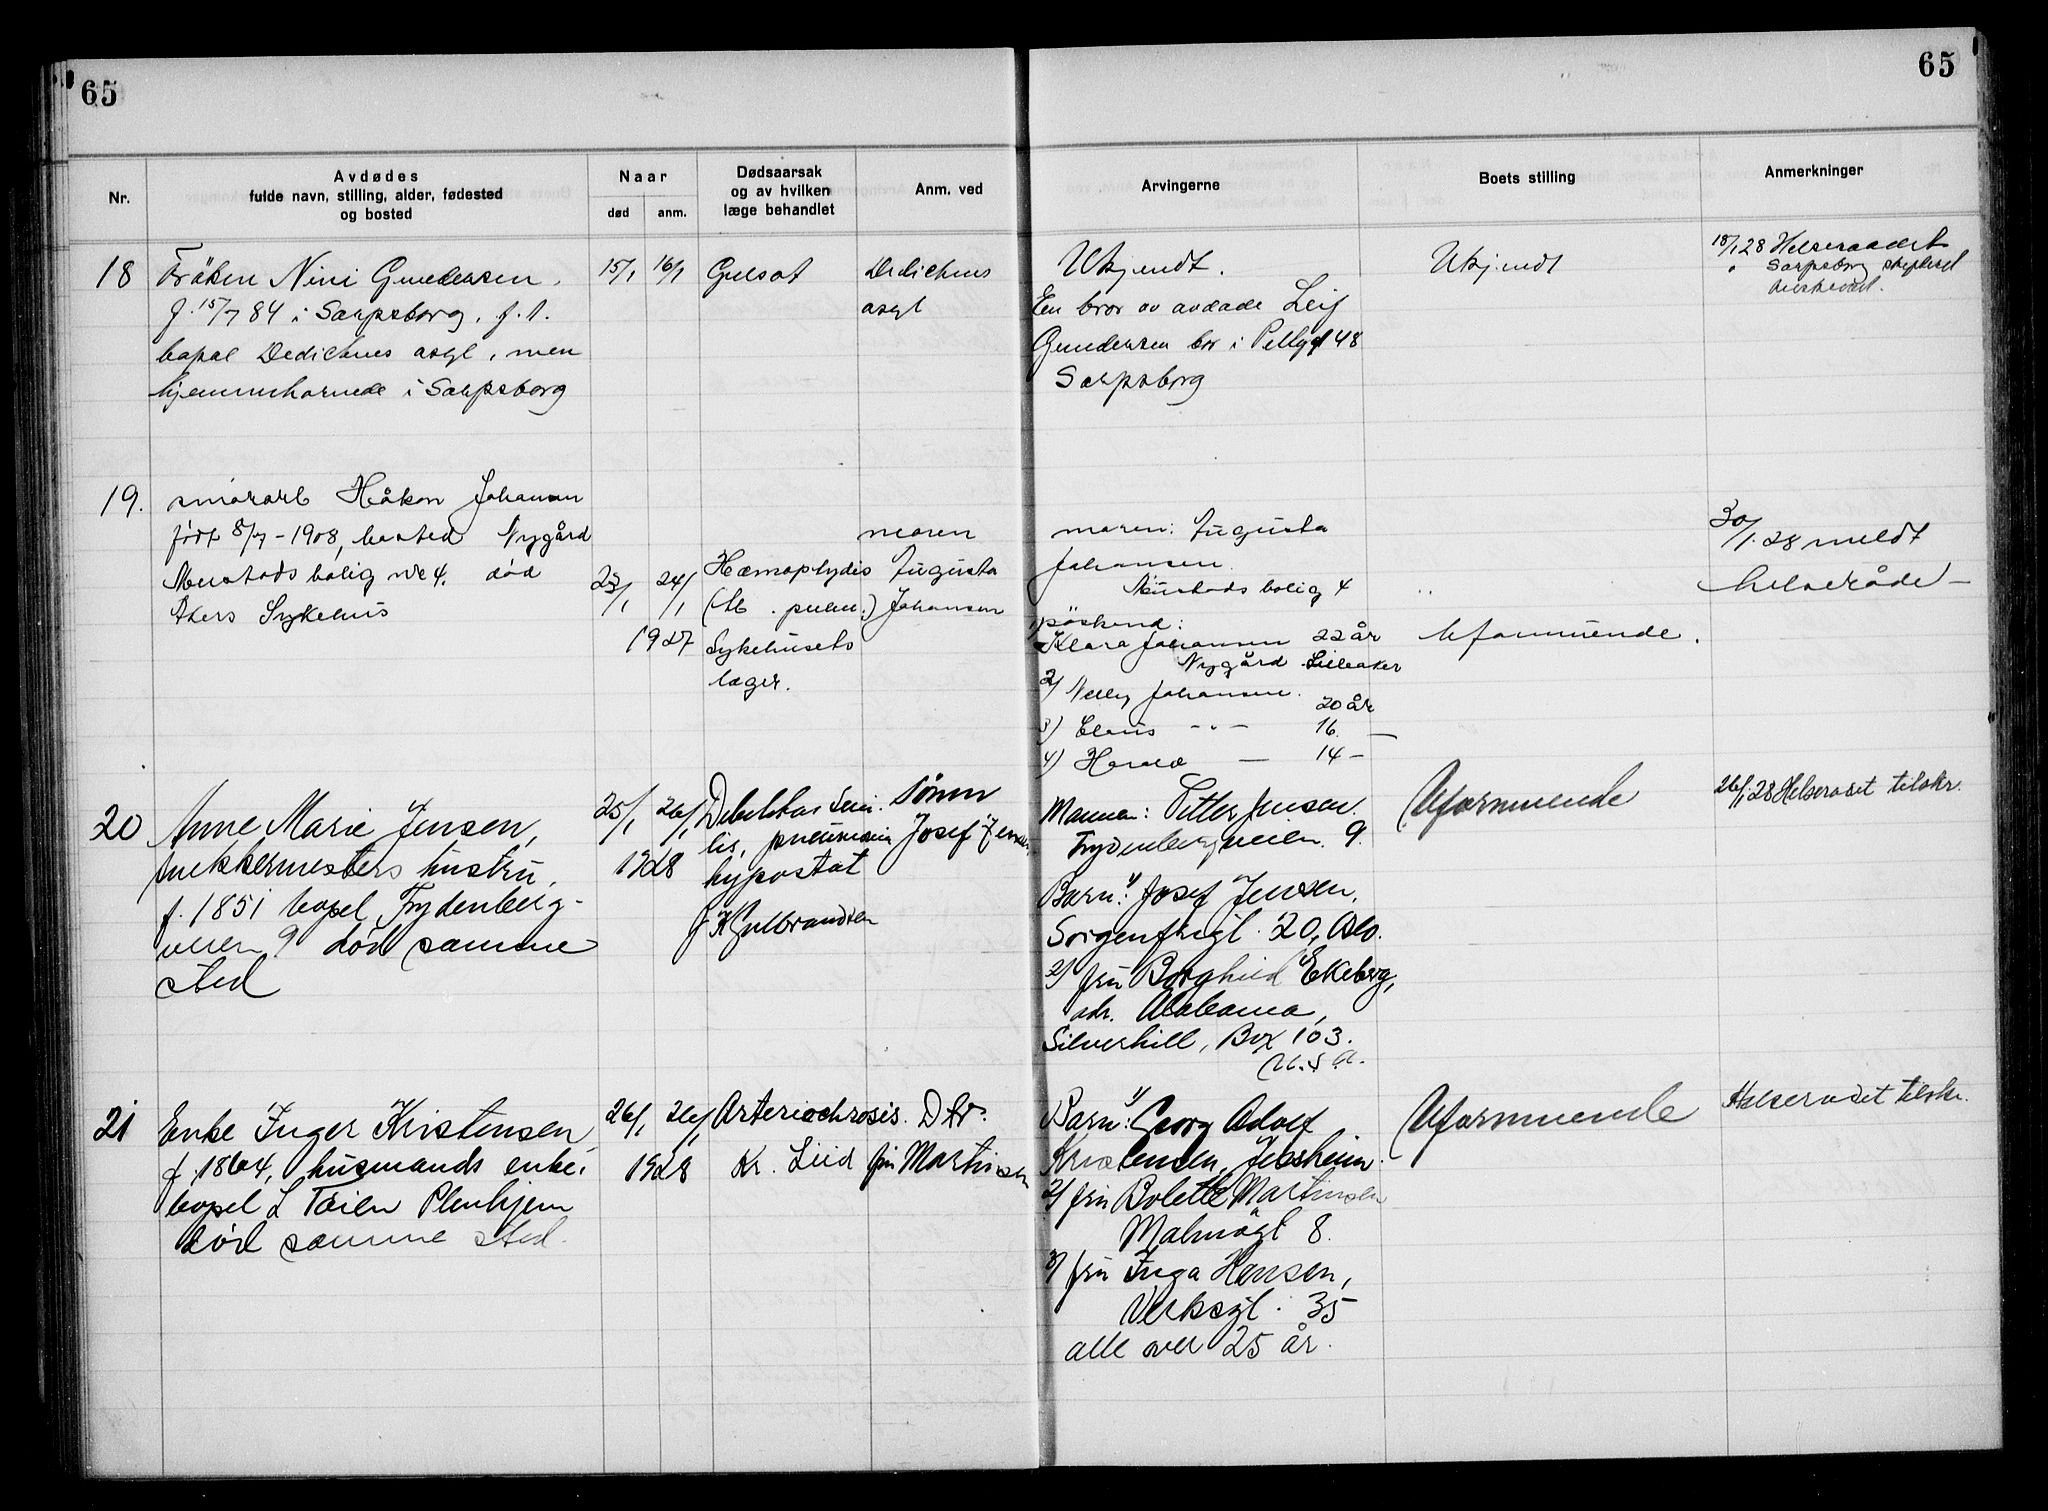 65
65
Nr.
Avdødes
fulde navn, stilling, alder, fødested
og bosted
Naar
død
anm.
Dødsaarsak
og av hvilken
læge behandlet
Anm. ved
Arvingerne
Boets stilling
Anmerkninger
18
Frøken Nini Gundersen.
f. 15/7 84 i Sarpsborg. f. t.
bopæl Dedichens asyl, men
hjemmehørende i Sarpsborg
15/1
16/1
Gulsot
Dedichens
asyl
Ukjendt.
En bror av avdøde Leif
Gundersen bor i 48
Sarpsborg
Ukjendt
18/1 28 Helseraadet
" Sarpsborg skifteret
19.
Håkon Johansen
født 8/7 - 1908, bosted Nygård
Mustads bolig nr 4. død
Akers Sykehus
23/1
24/1
1927
Hæmoptydis
(tb. pulm.)
Sykehusets
læger.
moren
Augusta
Johansen
moren: Augusta
Johansen.
Mustads bolig 4
søskend:
1) Klara Johansen 22 år
Nygård Lilleaker
2) Nelly Johansen.
20 år
3) - " - 16 —
4) — 14 —
Uformuende.
30/1. 28 meldt
helseråde —
20
Anne Marie Jensen,
snekkermesters hustru,
f. 1851 bopel Frydenberg-
veien 9 død samme
sted
25/1
26/1
1928
Debilitas seni-
lis, pneumonia
hypostat
K Gulbrandsen
Sønnen
Josef Jensen
Mannen: Petter Jensen.
Frydenbergveien. 9.
Barn: 1) Josef Jensen,
Sorgenfrigt. 20, Oslo.
2) fru Borghild Ekeberg,
adr. Alabama,
Silverhill, Box 103.
U.S.A.
Uformuende
26/1 28 Helserådet tilskr.
21
Enke Inger Kristensen
f. 1864, husmands enke,
bopel L Tøien Pleiehjem
død samme sted.
26/1
26/1
1928
Arteriochrosis.
Kr. Lied
Dtr.
fru Martinsen
Barn: 1) Georg Adolf
Kristensen, Jessheim.
2) fru Bolette Martinsen
Malmögt 8.
3) fru Inga Hansen,
Verksgt. 35
alle over 25 år.
Uformuende
Helserådet tilskr.